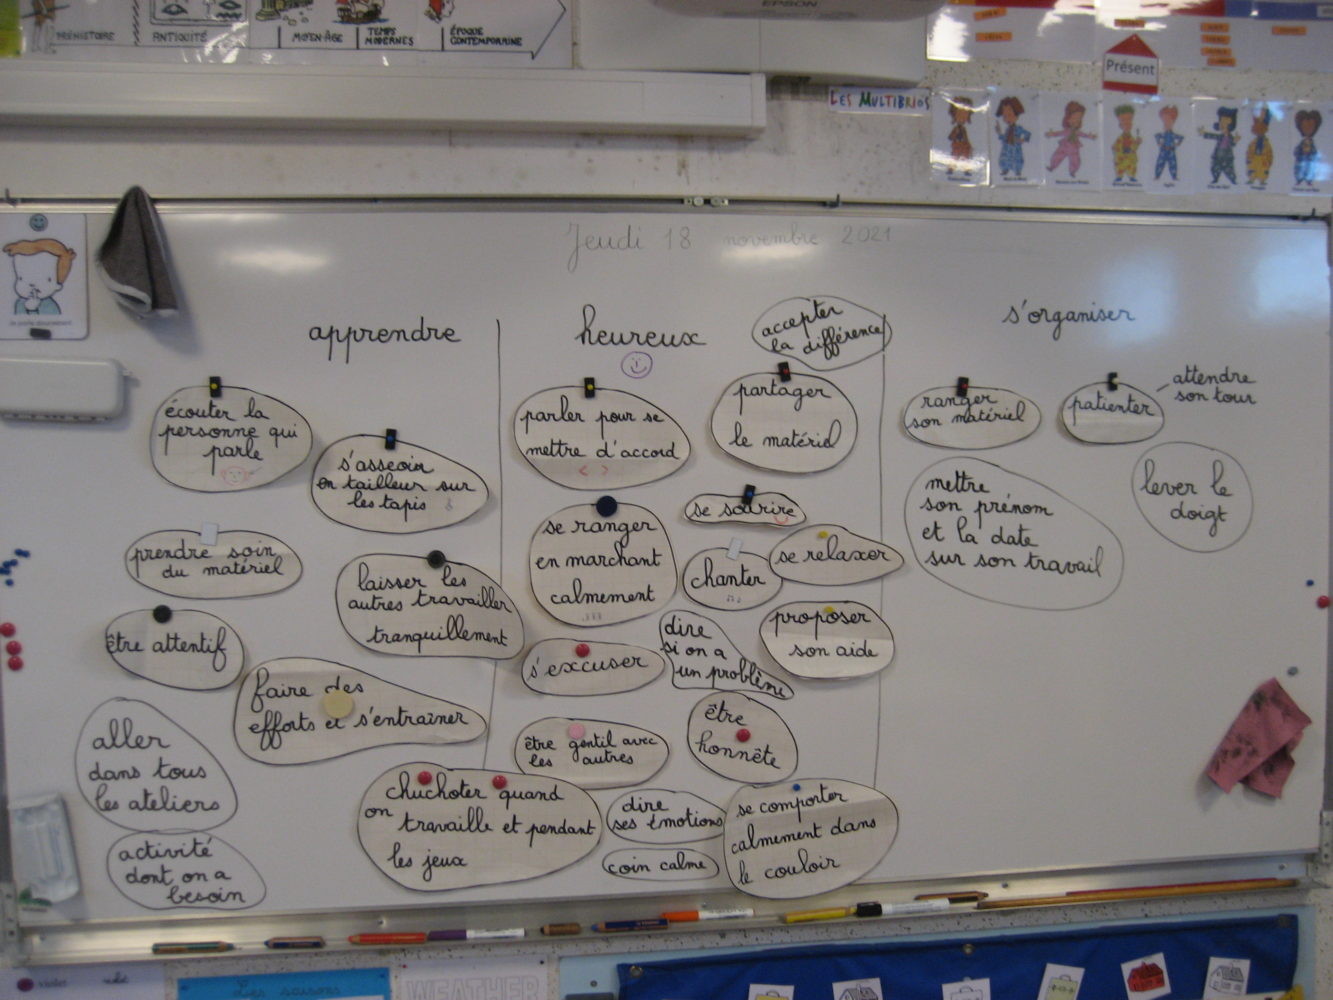 EPSON
PRÉHISTOIRE
ANTIQUITÉ
MOYEN-ÂGE
TEMPS
MODERNES
ÉPOQUE
CONTEMPORAINE
Présent
LES MULTIBRIOS
Jeudi 18 novembre 2021
apprendre
écouter la
personne qui
parle
s'asseoir
en tailleur sur
les tapis
prendre soin
du matériel
laisser les
autres travailler
tranquillement
être attentif
faire des
efforts et s'entraîner
aller
dans tous
les ateliers
activité
dont on a
besoin
chuchoter quand
on travaille et pendant
les jeux
heureux
accepter
la différence
parler pour se
mettre d'accord
partager
le matériel
se ranger
en marchant
calmement
se sourire
chanter
se relaxer
s'excuser
dire
si on a
un problème
proposer
son aide
être gentil avec
les autres
être
honnête
dire
ses émotions
coin calme
se comporter
calmement dans
le couloir
s'organiser
ranger
son matériel
patienter
attendre
son tour
mettre
son prénom
et la date
sur son travail
lever le
doigt
violet
Les saisons
WEATHER